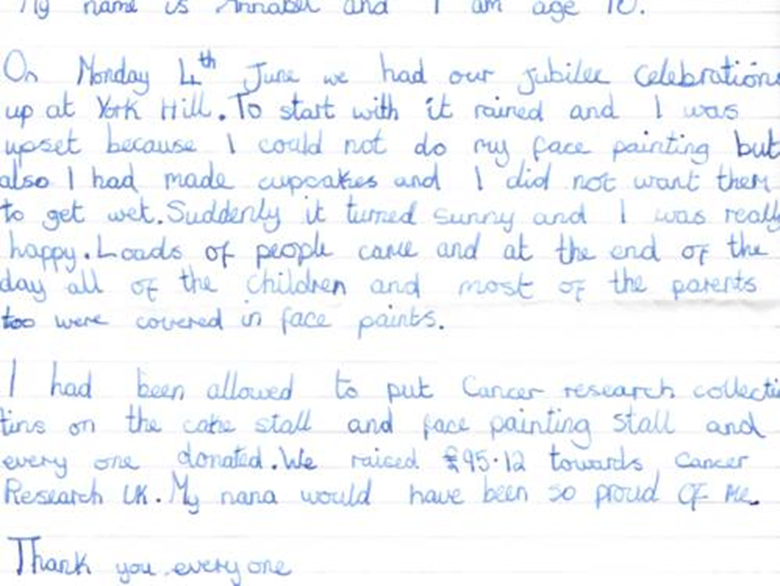 My name is Annabel and I am age 10.
On Monday 4th June we had our jubilee celebrations
up at York Hill. To start with it rained and I was
upset because I could not do my face painting but
also I had made cupcakes and I did not want them
to get wet. Suddenly it turned sunny and I was really
happy. Loads of people came and at the end of the
day all of the children and most of the parents
too were covered in face paints.
I had been allowed to put Cancer research collecti
tins on the cake stall and face painting stall and
every one donated. We raised £95.12 towards Cancer
Research UK. My nana would have been so proud OF me.
Thank you every one